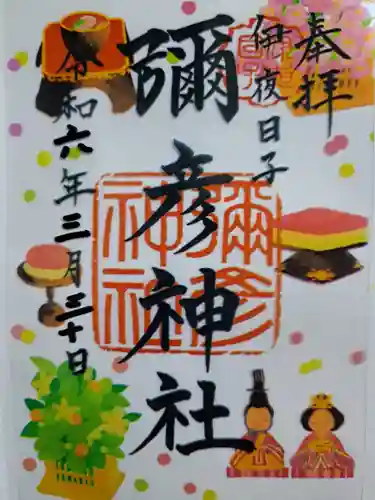 奉拝
伊夜日子
彌彦神社
令和六年三月三十日
彌彦神社